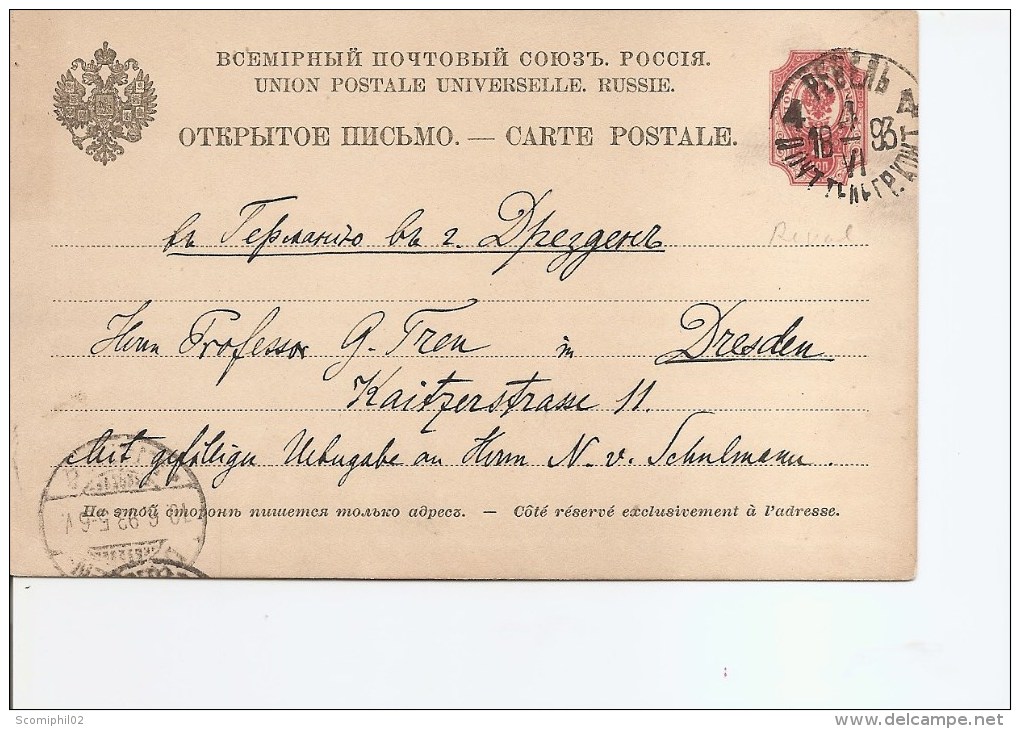 ВСЕМІРНЫЙ ПОЧТОВЫЙ СОЮЗЪ. РОССІЯ.
UNION POSTALE UNIVERSELLE. RUSSIE.
ОТКРЫТОЕ ПИСЬМО. — CARTE POSTALE.
РЕВЕЛЬ
4 4
18 VI 93
въ Германію въ г. Дрезденъ
Herrn Professor G. Treu in Dresden
Kaitzerstrasse 11.
Mit gefälliger Uebergabe an Herrn N. v. Schulmann.
На этой сторонѣ пишется только адресъ. — Côté réservé exclusivement à l'adresse.
10.6.93.5-6V.
Scomiphil02
delcampe.net